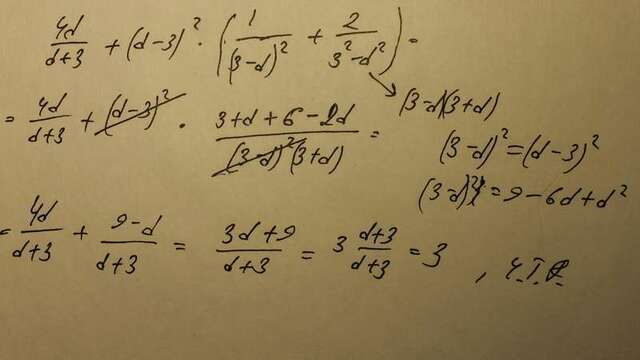 4d/(d+3) + (d-3)² · (1/(3-d)² + 2/(3²-d²)) =
= 4d/(d+3) + (d-3)² · (3+d+6-2d)/((3-d)²(3+d)) =
(3-d)(3+d)
(3-d)² = (d-3)²
(3-d)² = 9-6d+d²
= 4d/(d+3) + (9-d)/(d+3) = (3d+9)/(d+3) = 3 (d+3)/(d+3) = 3